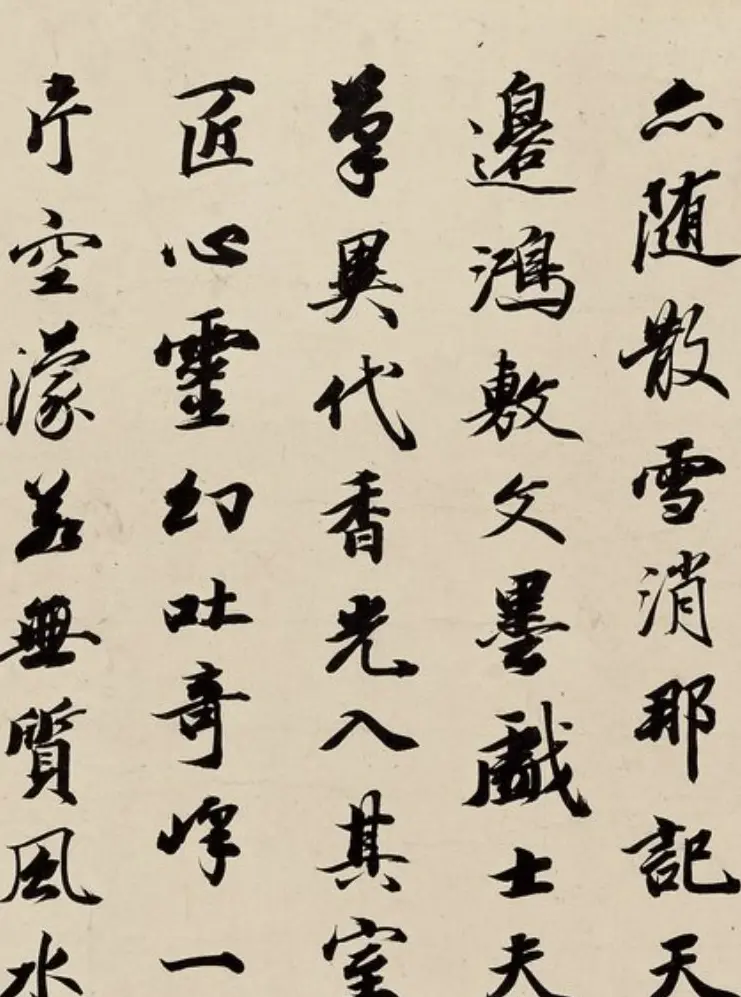 亦随散雪消那記天
邊鴻敷文墨戲士夫
筆異代香光入其室
匠心靈幻吐奇峰一
片空濛若無質風水